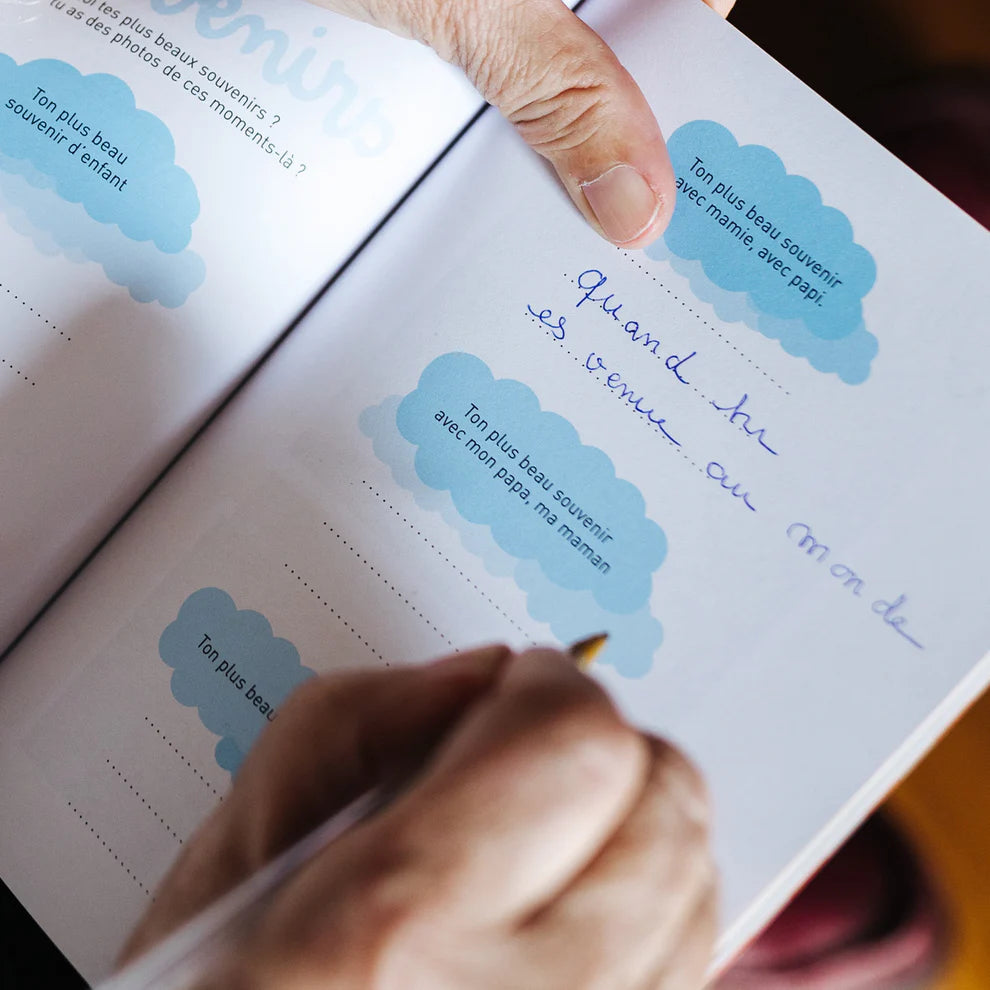 enirs
tes plus beaux souvenirs ?
tu as des photos de ces moments-là ?
Ton plus beau
souvenir d'enfant
Ton plus beau souvenir
avec mamie, avec papi.
quand tu
es venue au monde
Ton plus beau souvenir
avec mon papa, ma maman
Ton plus beau